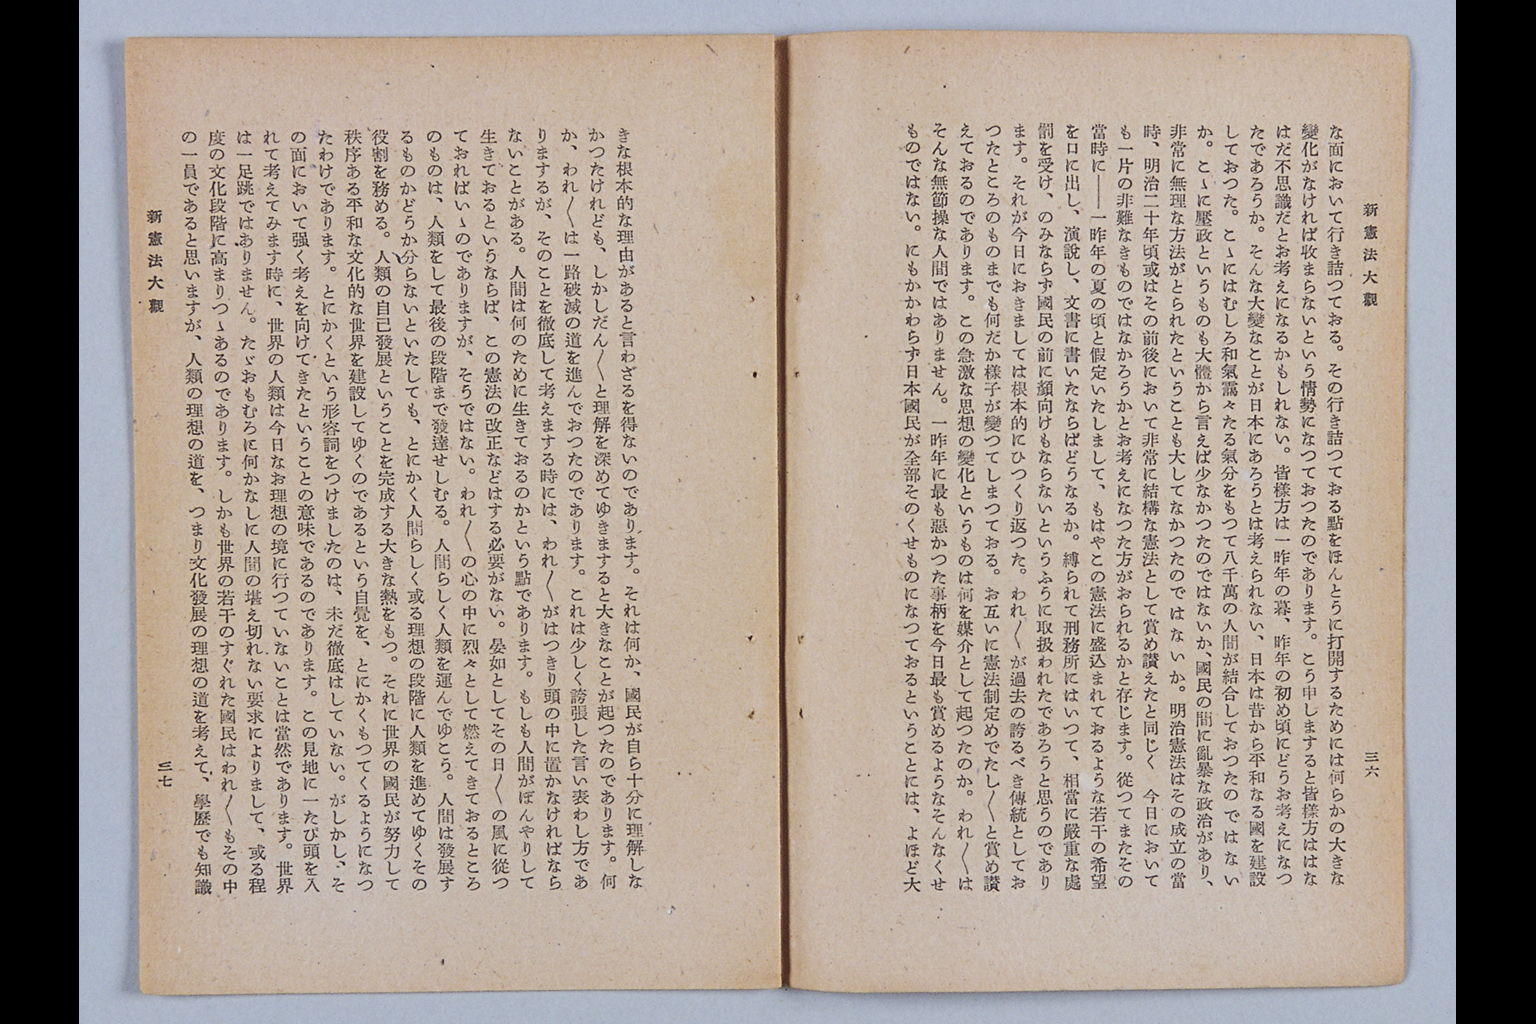 新憲法大觀
三六
な面において行き詰つておる。その行き詰つておる點をほんとうに打開するためには何らかの大きな
變化がなければ收まらないという情勢になつておつたのであります。こう申しますると皆樣方ははな
はだ不思議だとお考えになるかもしれない。皆樣方は一昨年の暮、昨年の初め頃にどうお考えになつ
たであろうか。そんな大變なことが日本にあろうとは考えられない、日本は昔から平和なる國を建設
しておつた。こゝにはむしろ和氣靄々たる氣分をもつて八千萬の人間が結合しておつたのではない
か。こゝに壓政というものも大體から言えば少なかつたのではないか、國民の間に亂暴な政治があり、
非常に無理な方法がとられたということも大してなかつたのではないか。明治憲法はその成立の當
時、明治二十年頃或はその前後において非常に結構な憲法として賞め讃えたと同じく、今日において
も一片の非難なきものではなかろうかとお考えになつた方がおられるかと存じます。從つてまたその
當時に――一昨年の夏の頃と假定いたしまして、もはやこの憲法に盛込まれておるような若干の希望
を口に出し、演說し、文書に書いたならばどうなるか。縛られて刑務所にはいつて、相當に嚴重な處
罰を受け、のみならず國民の前に顏向けもならないというふうに取扱われたであろうと思うのであり
ます。それが今日におきましては根本的にひつくり返つた。われ〱が過去の誇るべき傳統としてお
つたところのものまでも何だか樣子が變つてしまつておる。お互いに憲法制定めでたし〱と賞め讃
えておるのであります。この急激な思想の變化というものは何を媒介として起つたのか。われ〱は
そんな無節操な人間ではありません。一昨年に最も惡かつた事柄を今日最も賞めるようなそんなくせ
ものではない。にもかかわらず日本國民が全部そのくせものになつておるということには、よほど大
きな根本的な理由があると言わざるを得ないのであります。それは何か、國民が自ら十分に理解しな
かつたけれども、しかしだん〱と理解を深めてゆきますると大きなことが起つたのであります。何
か、われ〱は一路破滅の道を進んでおつたのであります。これは少しく誇張した言い表わし方であ
りまするが、そのことを徹底して考えまする時には、われ〱がはつきり頭の中に置かなければなら
ないことがある。人間は何のために生きておるのかという點であります。もしも人間がぼんやりして
生きておるというならば、この憲法の改正などはする必要がない。晏如としてその日〱の風に從つ
ておればいゝのでありますが、そうではない。われ〱の心の中に烈々として燃えてきておるところ
のものは、人類をして最後の段階まで發達せしむる。人間らしく人類を運んでゆこう。人間は發展す
るものかどうか分らないといたしても、とにかく人間らしく或る理想の段階に人類を進めてゆくその
役割を務める。人類の自己發展ということを完成する大きな熱をもつ。それに世界の國民が努力して
秩序ある平和な文化的な世界を建設してゆくのであるという自覺を、とにかくもつてくるようになつ
たわけであります。とにかくという形容詞をつけましたのは、未だ徹底はしていない。がしかし、そ
の面において强く考えを向けてきたということの意味であるのであります。この見地に一たび頭を入
れて考えてみます時に、世界の人類は今日なお理想の境に行つていないことは當然であります。世界
は一足跳ではありません。たゞおもむろに何かなしに人間の堪え切れない要求によりまして、或る程
度の文化段階に高まりつゝあるのであります。しかも世界の若干のすぐれた國民はわれ〱もその中
の一員であると思いますが、人類の理想の道を、つまり文化發展の理想の道を考えて、學歷でも知識
新憲法大觀
三七